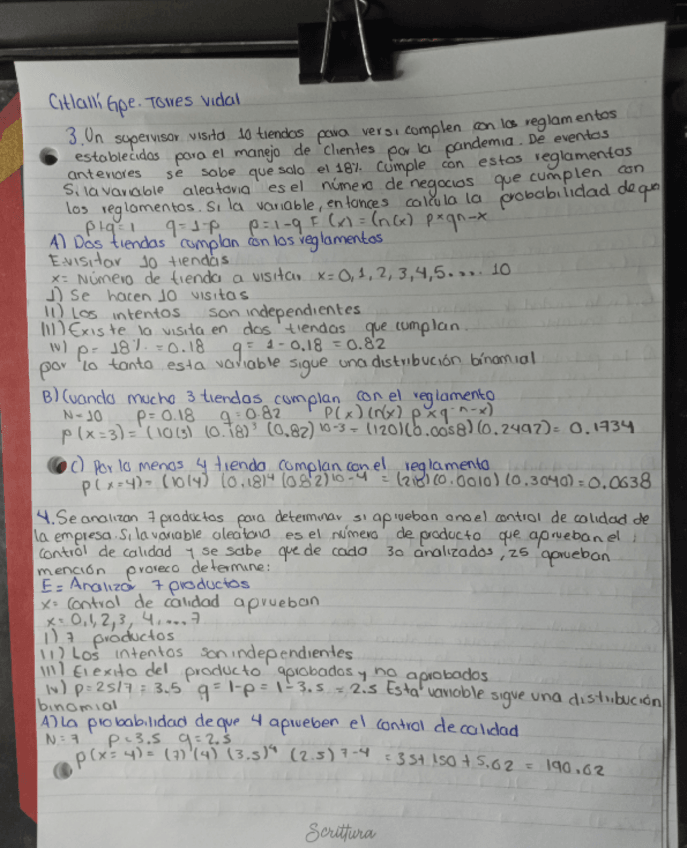 Citlalli Gpe. Torres Vidal
3. Un supervisor visita 10 tiendas para versi complen con los reglamentos
establecidos para el manejo de clientes por la pandemia. De eventos
anteriores se sabe que solo el 18% cumple con estos reglamentos
Si la variable aleatoria es el número de negocios que cumplen con
los reglamentos. Si la variable, entonces calcula la probabilidad de que
p+q=1 q=1-p p=1-q F(x)=(n(x) pxqn-x
A) Dos tiendas cumplan con los reglamentos
E.visitar 10 tiendas
x= Número de tienda a visitar x=0,1,2,3,4,5.... 10
I) Se hacen 10 visitas
II) Los intentos son independientes
III) Existe la visita en dos tiendas que cumplan.
IV) p= 18%. =0.18 q= 1-0.18 =0.82
por lo tanto esta variable sigue una distribución binomial
B) Cuando mucho 3 tiendas cumplan con el reglamento
N=10 p=0.18 q=0.82 P(x)(n(x) pxq-n-x)
p(x=3)=(10(3) (0.18)³ (0.82)¹⁰⁻³ = (120)(0.0058)(0.2492)= 0.1734
C) Por lo menos 4 tienda complan con el reglamento
p(x=4)= (10(4) (0.18)⁴ (0.82)¹⁰⁻⁴ = (210)(0.0010)(0.3040)=0.0638
4. Se analizan 7 productos para determinar si aprueban el control de calidad de
la empresa. Si la variable aleatoria es el número de producto que aprueban el
control de calidad y se sabe que de cada 30 analizados, 25 aprueban
mención determine:
E= Analizar 7 productos
x= control de calidad aprueban
x=0,1,2,3, 4,....7
I) 7 productos
II) Los intentos son independientes
III) El exito del producto aprobados y no aprobados
IV) p=25/7 = 3.5 q=1-p=1-3.5 = 2.5 Esta variable sigue una distribución
binomial
A) La probabilidad de que 4 aprueben el control de calidad
N=7 p=3.5 q=2.5
p(x=4)= (7)(4) (3.5)⁴ (2.5)⁷⁻⁴ = 35+150+5.62 = 190.62
Scrittura